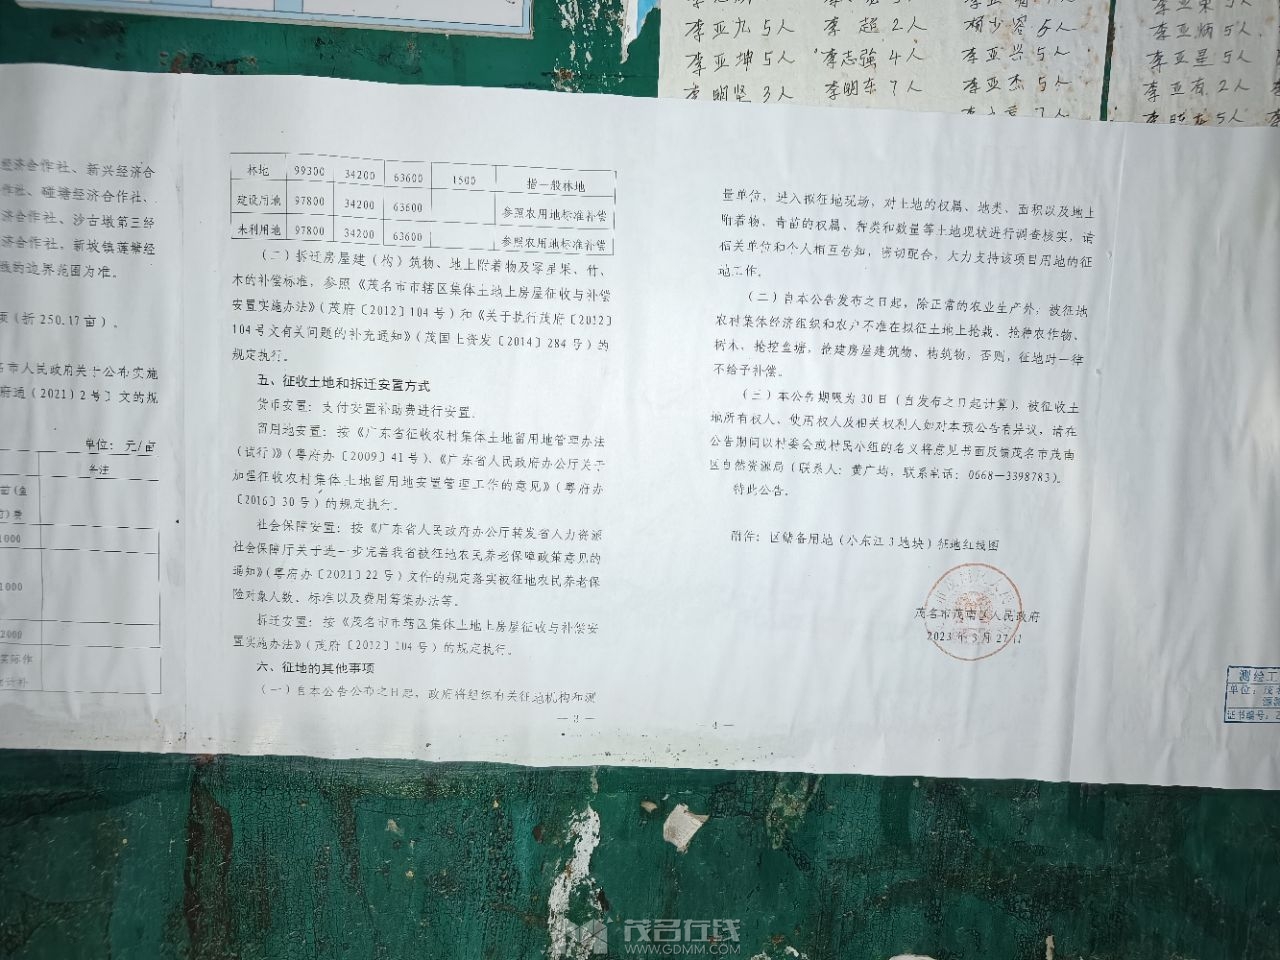 李亚九 5人 李 超 2人 5人
李亚坤 5人 李志强 4人 李亚兴 5人 李亚星 5人
李明坚 3人 李明东 7人 李亚杰 5人 李亚有 2人
7人 5人
经济合作社、新兴经济合
作社、碰塘经济合作社、
济合作社、沙古墩第三经
济合作社、新坡镇莲藜经
线的边界范围为准。
顷（折250.17亩）。
名市人民政府关于公布实施
府通〔2021〕2号〕文的规
单位：元/亩
备注
1000
1000
2000
林地 99300 34200 63600 1500 指一般林地
建设用地 97800 34200 63600 参照农用地标准补偿
未利用地 97800 34200 63600 参照农用地标准补偿
（二）拆迁房屋建（构）筑物、地上附着物及零星果、竹、
木的补偿标准，参照《茂名市市辖区集体土地上房屋征收与补偿
安置实施办法》（茂府〔2012〕104号）和《关于执行茂府〔2012〕
104号文有关问题的补充通知》（茂国土资发〔2014〕284号）的
规定执行。
五、征收土地和拆迁安置方式
货币安置：支付安置补助费进行安置。
留用地安置：按《广东省征收农村集体土地留用地管理办法
（试行）》（粤府办〔2009〕41号）、《广东省人民政府办公厅关于
加强征收农村集体土地留用地安置管理工作的意见》（粤府办
〔2016〕30号）的规定执行。
社会保障安置：按《广东省人民政府办公厅转发省人力资源
社会保障厅关于进一步完善我省被征地农民养老保障政策意见的
通知》（粤府办〔2021〕22号）文件的规定落实被征地农民养老保
险对象人数、标准以及费用筹集办法等。
拆迁安置：按《茂名市市辖区集体土地上房屋征收与补偿安
置实施办法》（茂府〔2012〕104号）的规定执行。
六、征地的其他事项
（一）自本公告公布之日起，政府将组织有关征地机构和测
— 3 —
量单位，进入拟征地现场，对土地的权属、地类、面积以及地上
附着物、青苗的权属、种类和数量等土地现状进行调查核实，请
相关单位和个人相互告知，密切配合，大力支持该项目用地的征
地工作。
（二）自本公告发布之日起，除正常的农业生产外，被征地
农村集体经济组织和农户不准在拟征土地上抢栽、抢种农作物、
树木、抢挖鱼塘，抢建房屋建筑物、构筑物，否则，征地时一律
不给予补偿。
（三）本公告期限为30日（自发布之日起计算），被征收土
地所有权人、使用权人及相关权利人如对本预公告有异议，请在
公告期间以村委会或村民小组的名义将意见书面反馈茂名市茂南
区自然资源局（联系人：黄广均，联系电话：0668—3398783）。
特此公告。
附件：区储备用地（小东江3地块）征地红线图
茂名市茂南区人民政府
2023年3月27日
— 4 —
测绘工
单位：茂名
证书编号：2
茂名在线
WWW.GDMM.COM